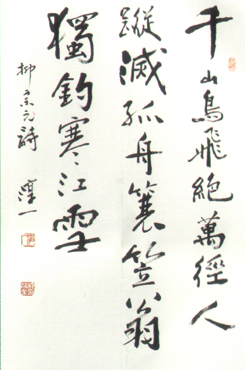 千山鳥飛絕萬徑人
蹤滅孤舟蓑笠翁
獨釣寒江雪
柳宗元詩 淳一